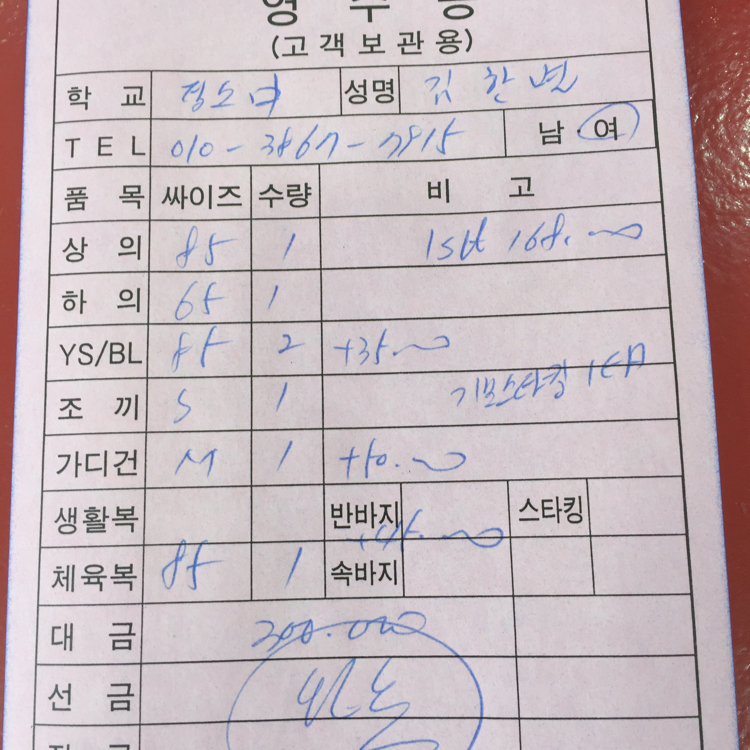 영 수 증
(고객보관용)
학 교 정소여 성명 김한별
TEL 010-3867-7915 남·여
품 목 싸이즈 수량 비 고
상 의 85 1 1set 168.
하 의 65 1
YS/BL 85 2 +35.
조 끼 S 1 기모스타킹 1EA
가디건 M 1 +10.
생활복 반바지 스타킹
체육복 85 1 속바지
대 금
선 금
완납